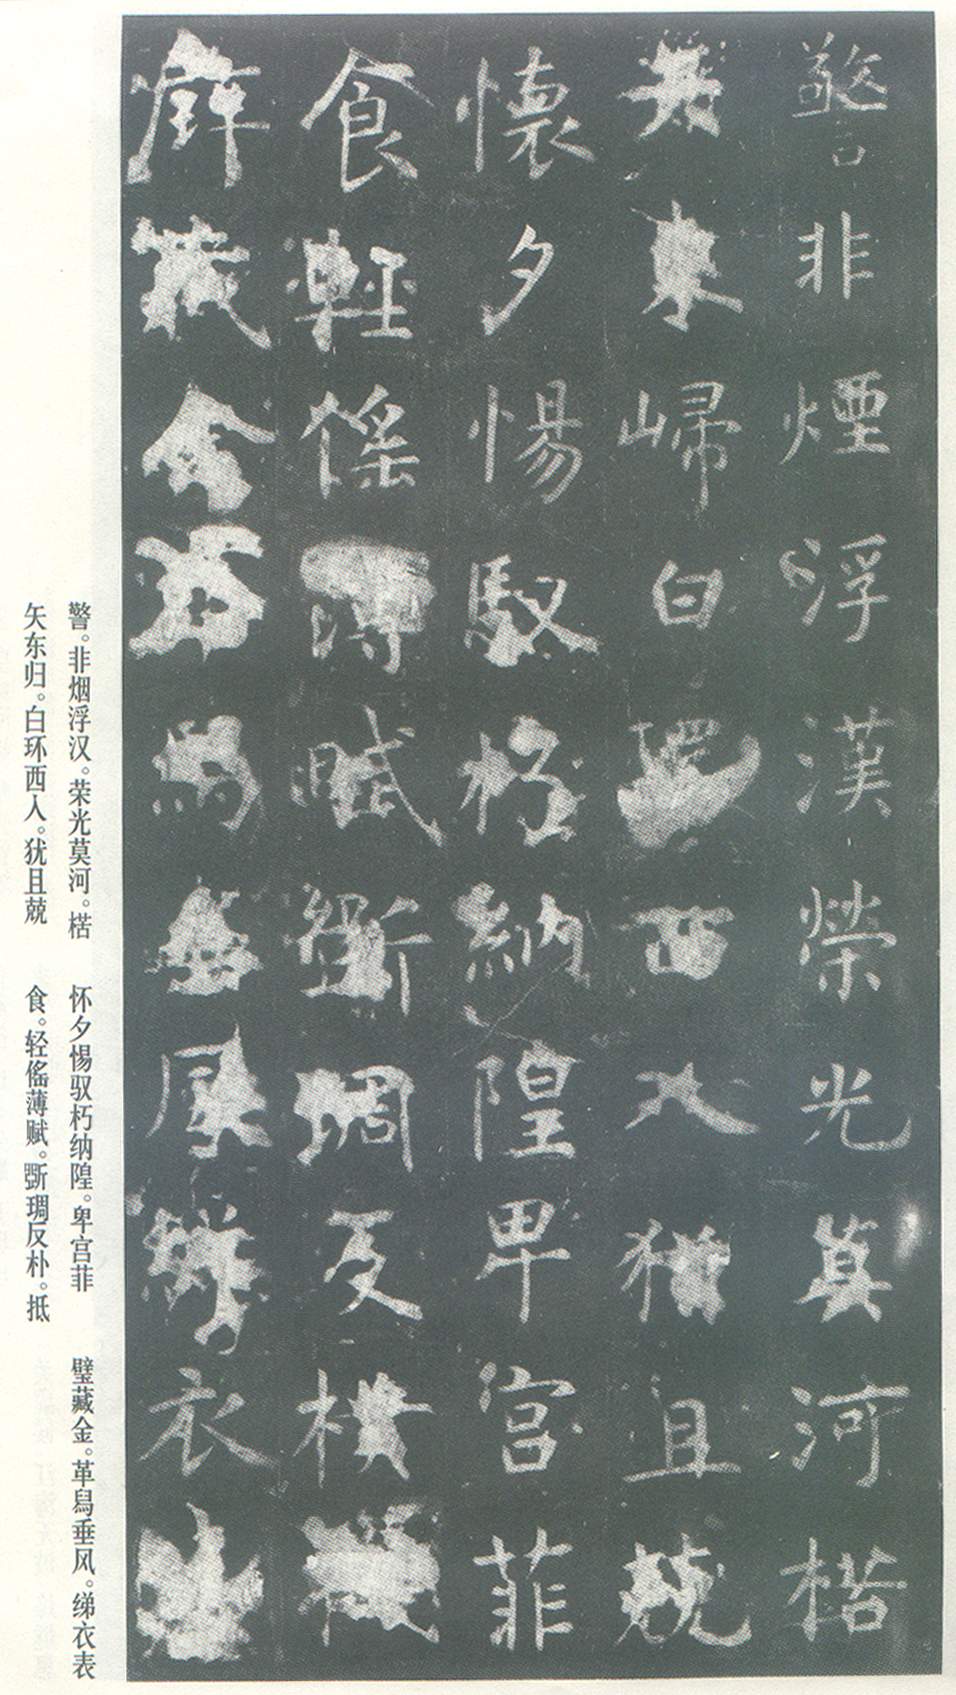 警非煙浮漢榮光莫河楛
矢東歸白環西入猶且兢
懷夕惕馭朽納隍卑宮菲
食輕傜薄賦斲琱反樸抵
璧藏金革舄垂風綈衣表
警。非烟浮汉。荣光莫河。楛
矢东归。白环西入。犹且兢
怀夕惕驭朽纳隍。卑宫菲
食。轻傜薄赋。斲琱反朴。抵
璧藏金。革舄垂风。绨衣表